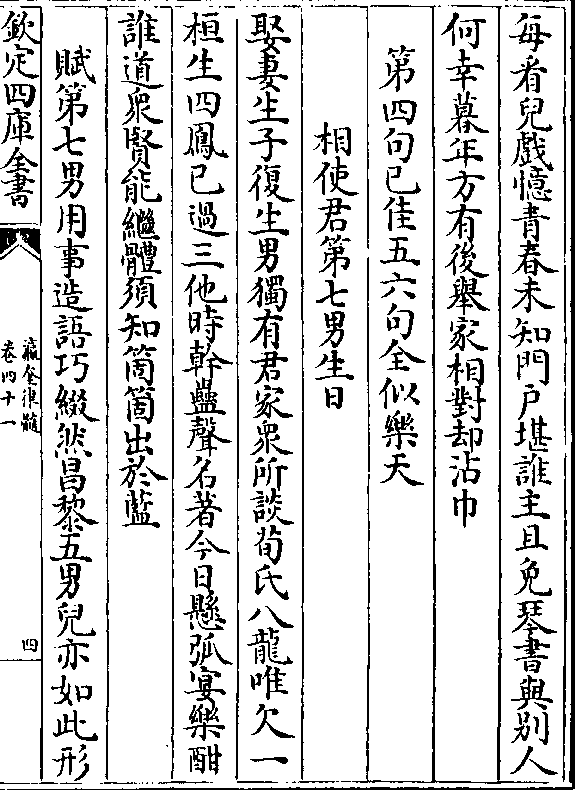 每看兒戲憶青春未知門户堪誰主且免琴書與别人
何幸暮年方有後舉家相對却沾巾
第四句已佳五六句全似樂天
相使君第七男生日
娶妻生子復生男獨有君家衆所談荀氏八龍唯欠一
桓生四鳳已過三他時幹蠱聲名著今日懸弧宴樂酣
誰道衆賢能繼體須知箇箇出於藍
賦第七男用事造語巧綴然昌黎五男兒亦如此形
欽定四庫全書
瀛奎律髓
卷四十一
四